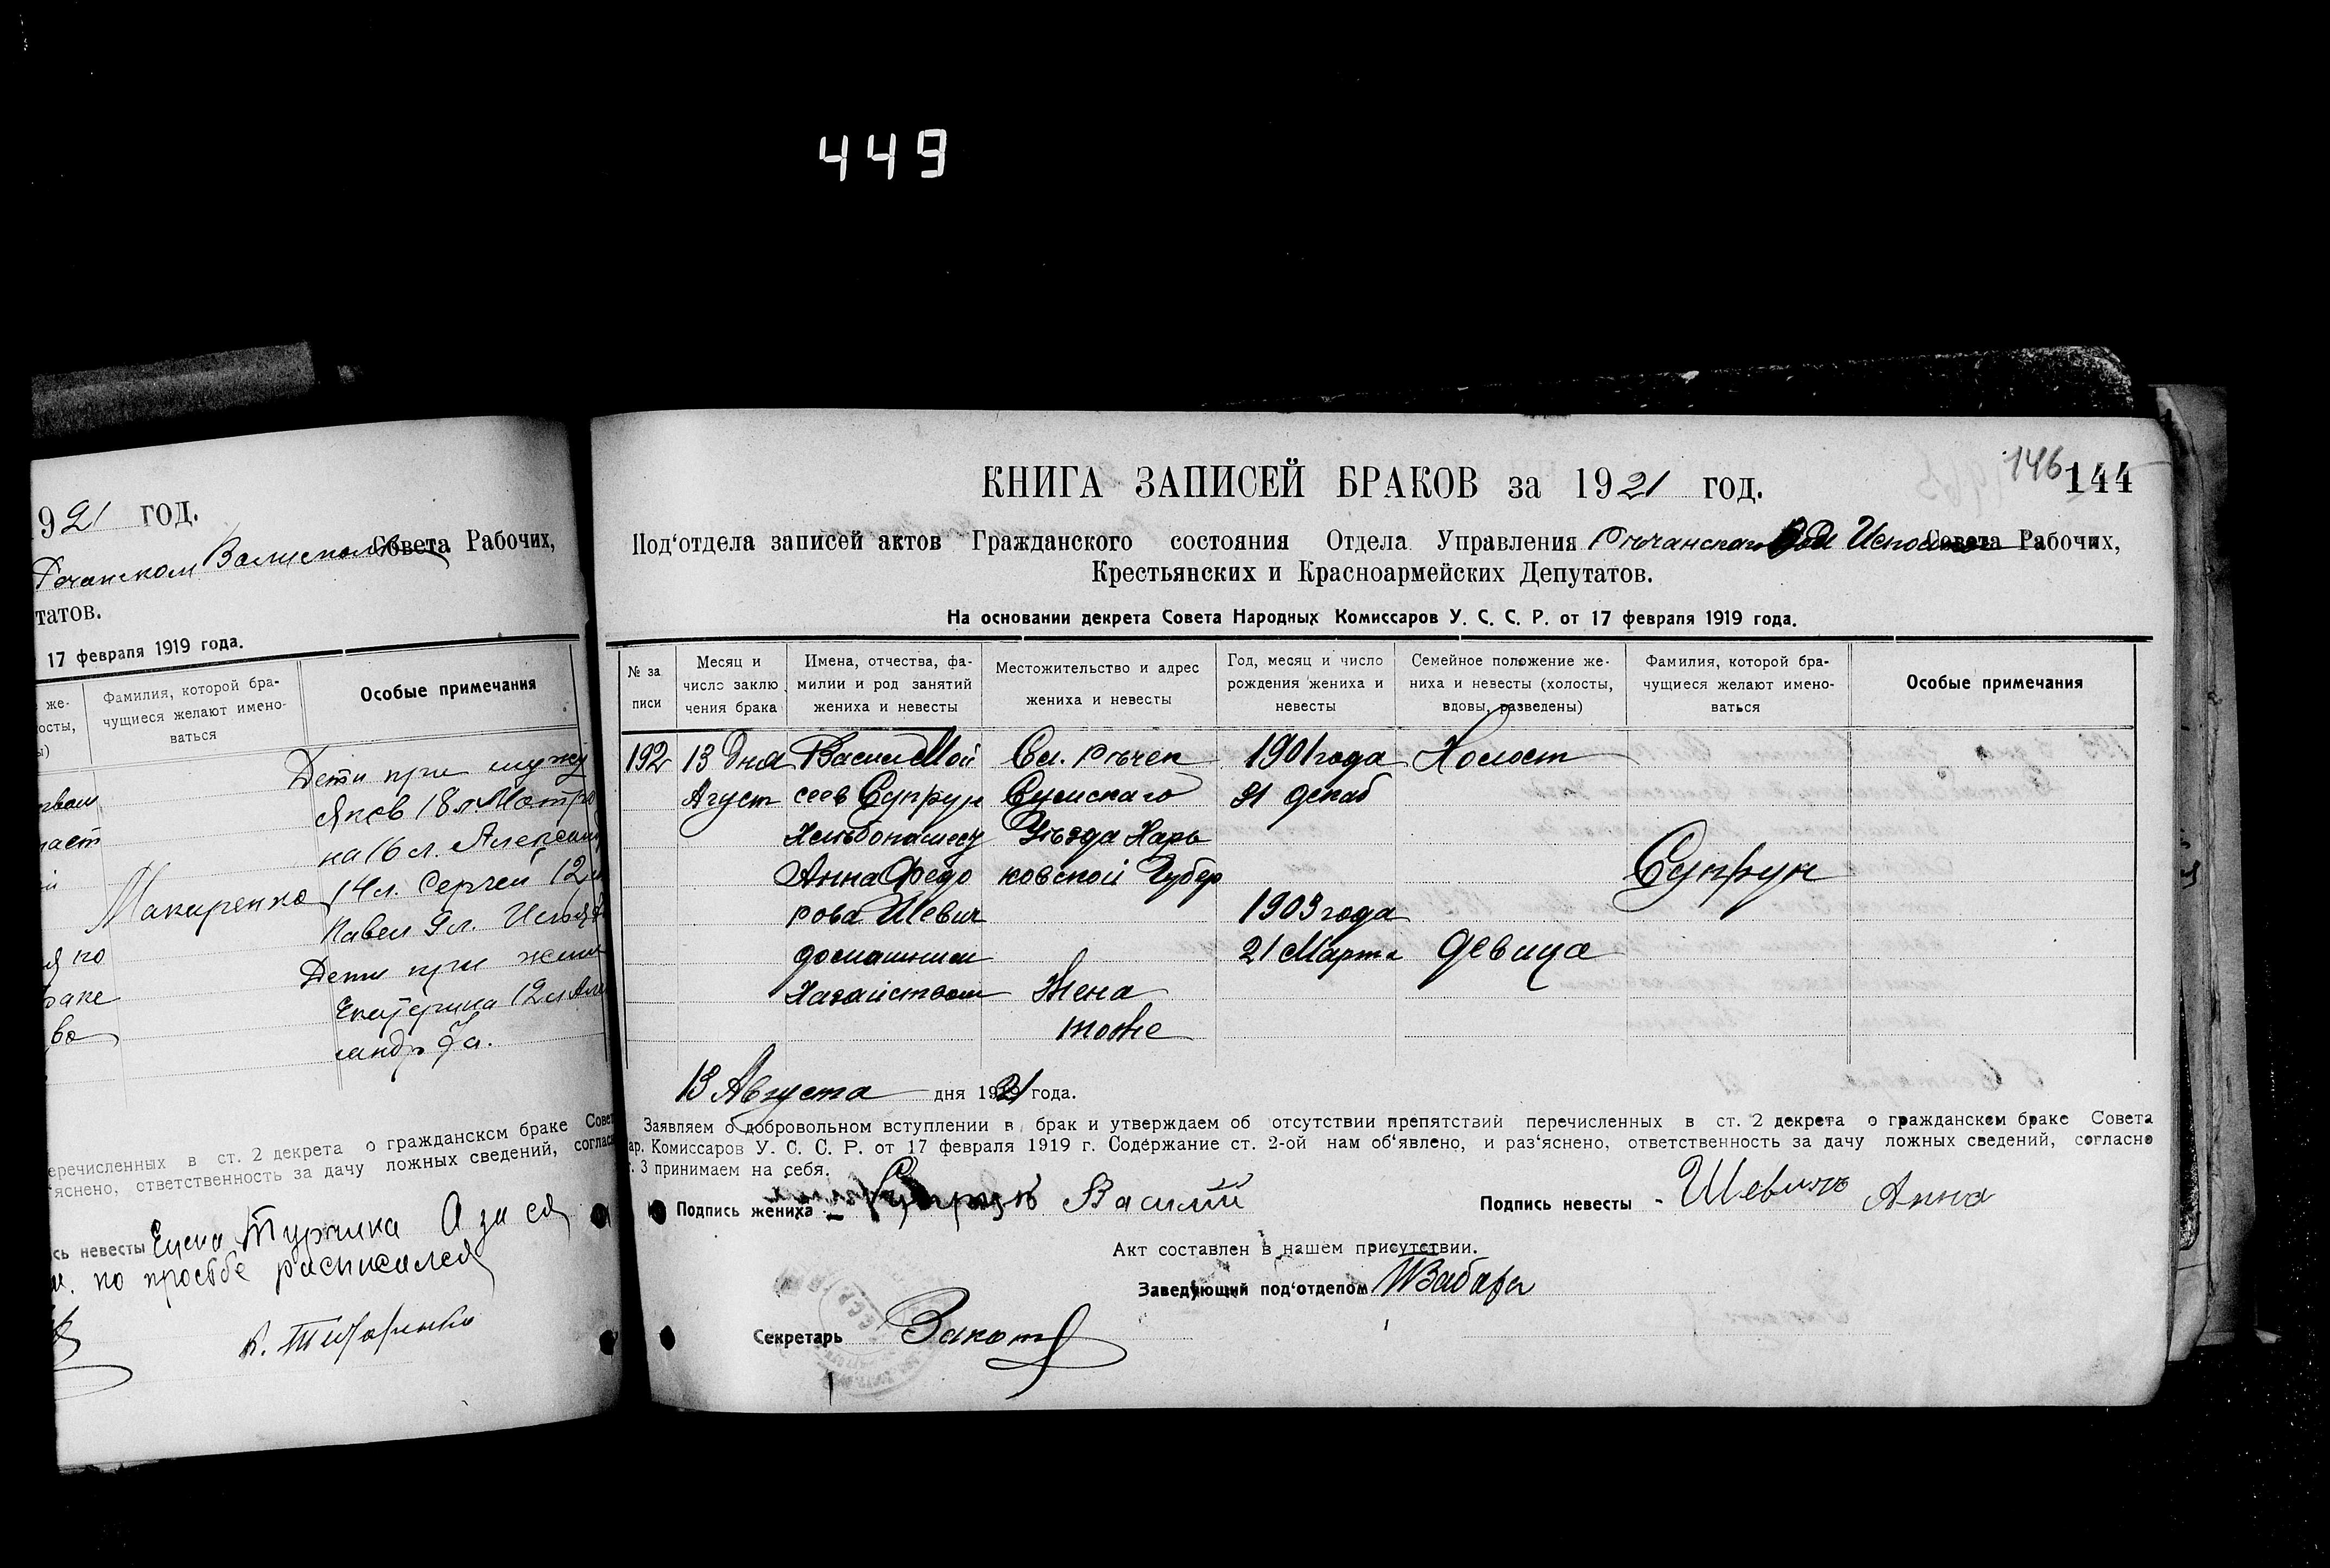 449
921 год.
Речанском Волисполк Совета Рабочих,
татов.
17 февраля 1919 года.
же-
осты,
ы)
Фамилия, которой бра-
чущиеся желают имено-
ваться
Особые примечания
Дети при мужу
Яков 18 л. Мотро
на 16 л. Александ
Макаренко
14 л. Сергей 12 л
Павел 9 л.
Дети при жени
Екатерина 12 л Але
ксандр 7 л.
еречисленных в ст. 2 декрета о гражданском браке Совет
'яснено, ответственность за дачу ложных сведений, соглас
сь невесты Елена Турчина А за ея
по просьбе расписался
146 144
КНИГА ЗАПИСЕЙ БРАКОВ за 1921 год.
Под'отдела записей актов Гражданского состояния Отдела Управления Речанскаго Вол Исполкома Совета Рабочих,
Крестьянских и Красноармейских Депутатов.
На основании декрета Совета Народных Комиссаров У. С. С. Р. от 17 февраля 1919 года.
№ за
писи
Месяц и
число заклю
чения брака
Имена, отчества, фа-
милии и род занятий
жениха и невесты
Местожительство и адрес
жениха и невесты
Год, месяц и число
рождения жениха и
невесты
Семейное положение же-
ниха и невесты (холосты,
вдовы, разведены)
Фамилия, которой бра-
чущиеся желают имено-
ваться
Особые примечания
192 13 дня Васил Мой Сл. Рѣчек 1901 года Холост
Агуст сеев Супрун Сумскаго 31 декаб
Хлѣбопашец Уѣзда Харь
Анна Федо ковской Губер Супрун
рова Шевич 1903 года
домашним 21 Марта девица
Хазайством Жена
тоже
13 Августа дня 1921 года.
Заявляем о добровольном вступлении в брак и утверждаем об отсутствии препятствий перечисленных в ст. 2 декрета о гражданском браке Совета
ар. Комиссаров У. С. С. Р. от 17 февраля 1919 г. Содержание ст. 2-ой нам об'явлено, и раз'яснено, ответственность за дачу ложных сведений, согласно
т. 3 принимаем на себя.
Подпись жениха Супрун Василий Подпись невесты - Шевичь Анна
Акт составлен в нашем присутствии.
Заведующий под'отделом
Секретарь